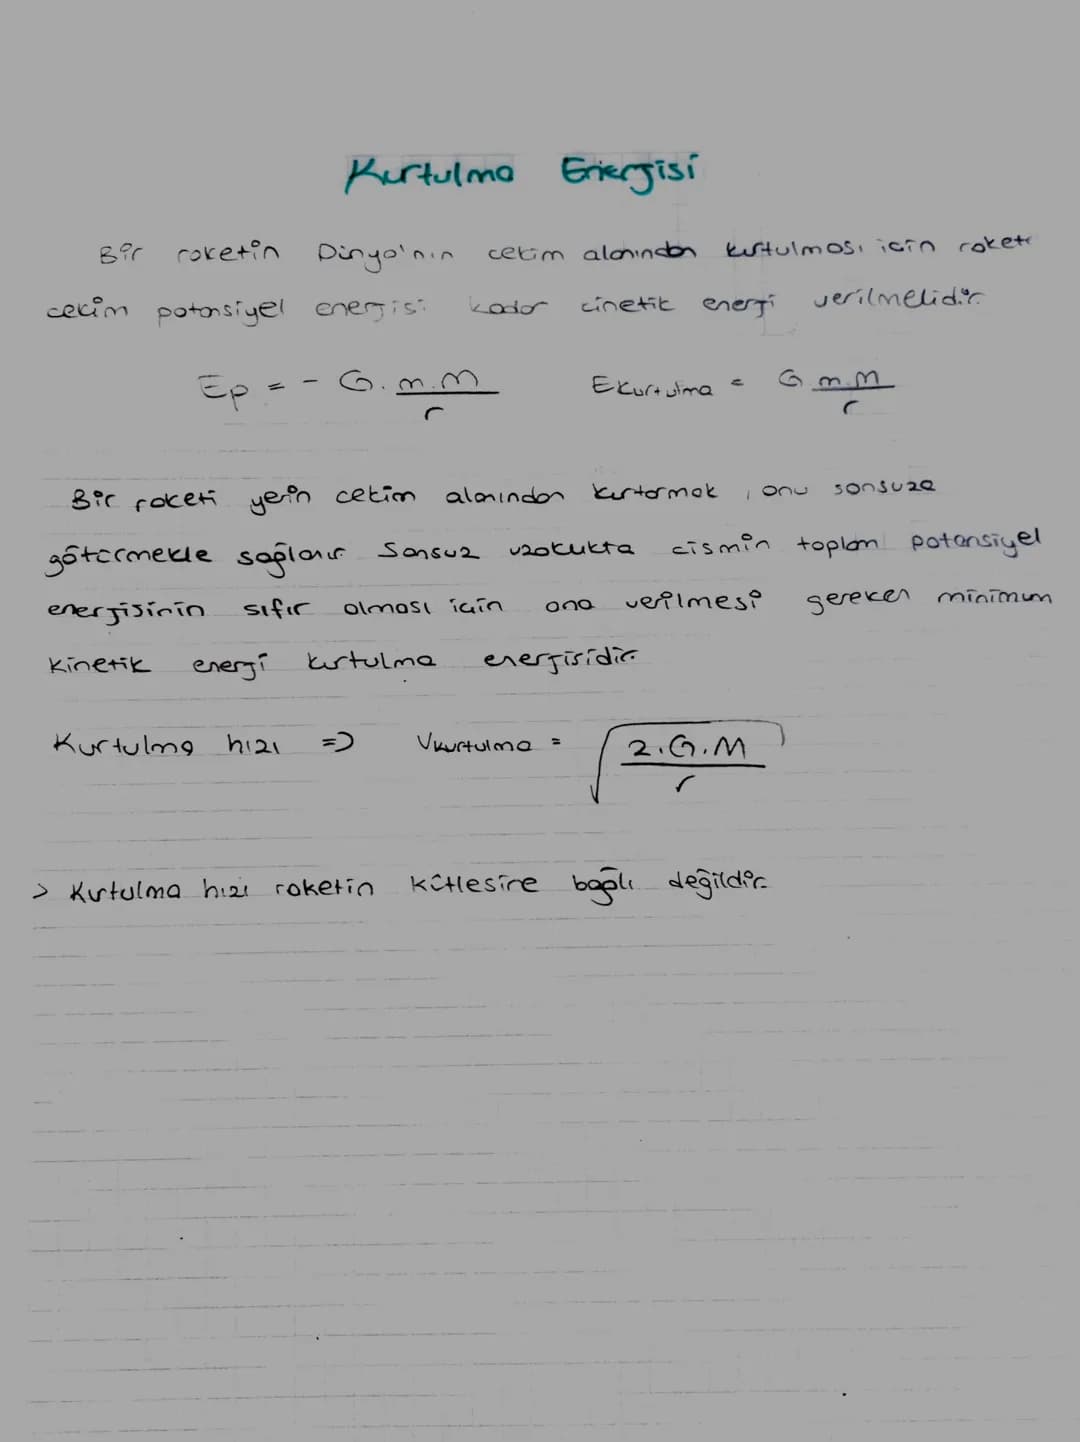 Kurtulma Enerjisi
Bir roketin Dünya'nın çekim alanından kurtulması için rokete
çekim potansiyel enerjisi kadar kinetik enerji verilmelidir.
Ep = - G. m.M / r    Ekurtulma = G m.M / r
Bir roketi yerin çekim alanından kurtarmak, onu sonsuza
götürmekle sağlanır Sonsuz uzaklıkta cismin toplam potansiyel
enerjisinin sıfır olması için ona verilmesi gereken minimum
kinetik enerji kurtulma enerjisidir.
Kurtulma hızı => Vkurtulma = √ 2.G.M / r
> Kurtulma hızı roketin kütlesine bağlı değildir.